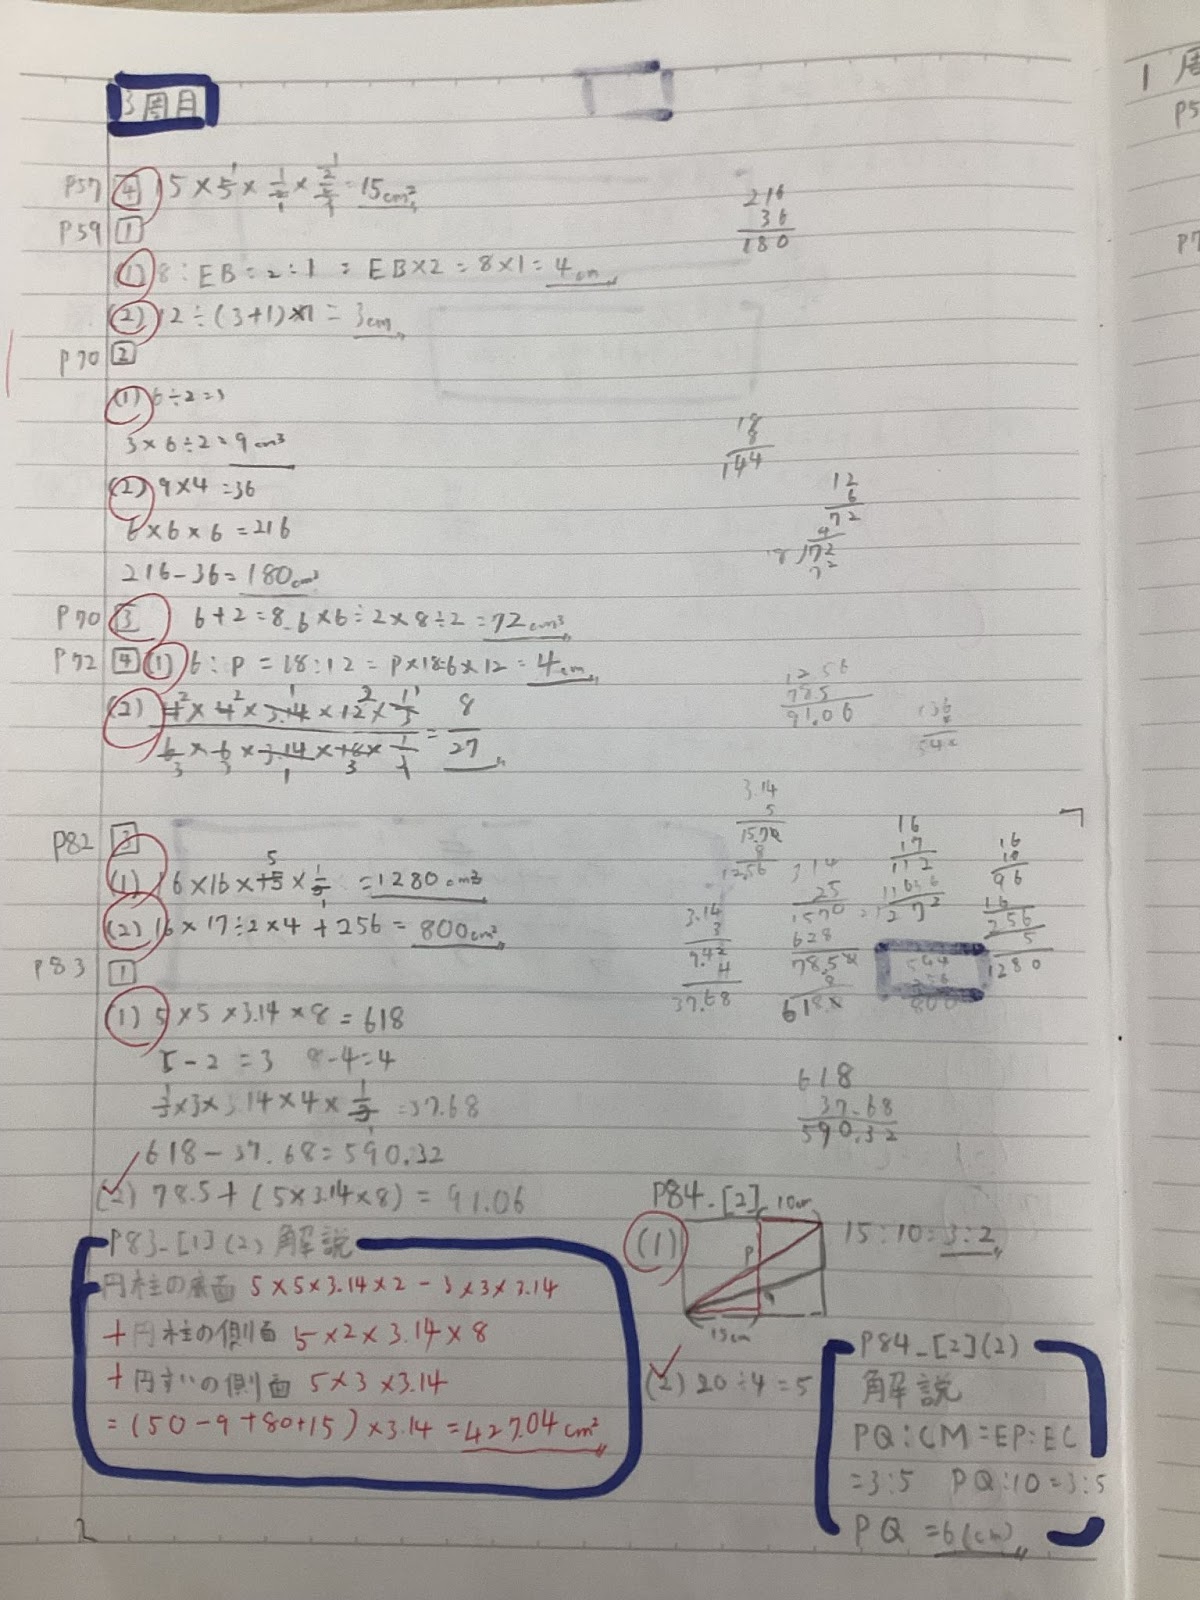 3周目
P57 [4] 15×5×1/2×2/3=15cm²
P59 [1]
(1) 8:EB=2:1 = EB×2=8×1=4cm
(2) 12÷(3+1)×1=3cm
P70 [2]
(1) 6÷2=3
3×6÷2=9cm³
(2) 9×4=36
6×6×6=216
216-36=180cm³
P70 [3] 6+2=8 6×6÷2×8÷2=72cm³
P72 [4] (1) 6:P=18:12=P×18=6×12=4cm
(2) 4×4×3.14×12×1/3 / 6×6×3.14×18×1/3 = 8/27
P82 [3]
(1) 16×16×15×1/3=1280cm³
(2) 16×17÷2×4+256=800cm²
P83 [1]
(1) 5×5×3.14×8=618
5-2=3 8-4=4
3×3×3.14×4×1/3=37.68
618-37.68=590.32
(2) 78.5+(5×3.14×8)=91.06
P83-[1](2) 解説
円柱の底面 5×5×3.14×2-3×3×3.14
+円柱の側面 5×2×3.14×8
+円すいの側面 5×3×3.14
=(50-9+80+15)×3.14=427.04cm²
2
216
36
180
18
8
144
12
6
72
4
18)72
72
12.56
78.5
91.06
3.14
5
15.70
8
12.56
3.14
3
9.42
4
37.68
314
25
1570
628
78.5
8
618
16
17
112
16
272
544
256
800
16
16
96
16
256
5
1280
618
37.68
590.32
P84-[2]
10cm
(1)
P
15cm
15:10=3:2
(2) 20÷4=5
P84-[2](2)
解説
PQ:CM=EP:EC
=3:5 PQ:10=3:5
PQ=6(cm)
1周
P5
P7